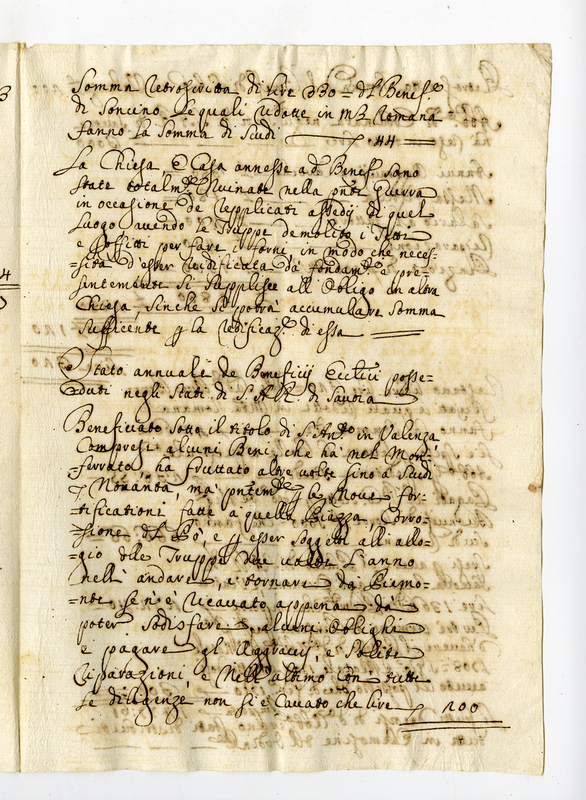 Somma retroscritta di lire 330 = del Benef.º
di Soncino le quali ridotte in m.ta Romana
fanno la somma di Scudi 44
La Chiesa, e Casa annesse a d.º Benef.º sono
state totalm.te ruinate nella pnte guerra
in occasione de replicati assedij di quel
luogo avendo le Truppe demolito i Tetti
e soffitti per fare i forni, in modo che neces-
=sita d'esser reidificata da fondam.ti e pre-
sentemente si supplisce all'obligo in altra
Chiesa, sinche si potrà accumulare somma
sufficente p la reedificaz.e d'essa
Stato annuale de Beneficij Eccl.ci posse-
=duti negli Stati di S. A. R. di Savoia
Beneficiato sotto il titolo di S. Ant.º in Valenza
Compresi alcuni Beni, che ha nel Mon-
=ferrato, ha fruttato altre volte sino a Scudi
Novanta, ma pntem.te p le nuove for-
=tificationi fatte a quella Piazza, Corro-
=sione del Pò, e p esser soggetti all'allo-
=gio delle Truppe due volte l'anno
nell'andare, e tornare da Piemo-
=nte se n'è ricavato appena da
poter sodisfare alcuni oblighi
e pagare gl'Aggravij, e solite
riparazioni e nell'ultimo con tutte
le diligenze non si è cavato che lire 100